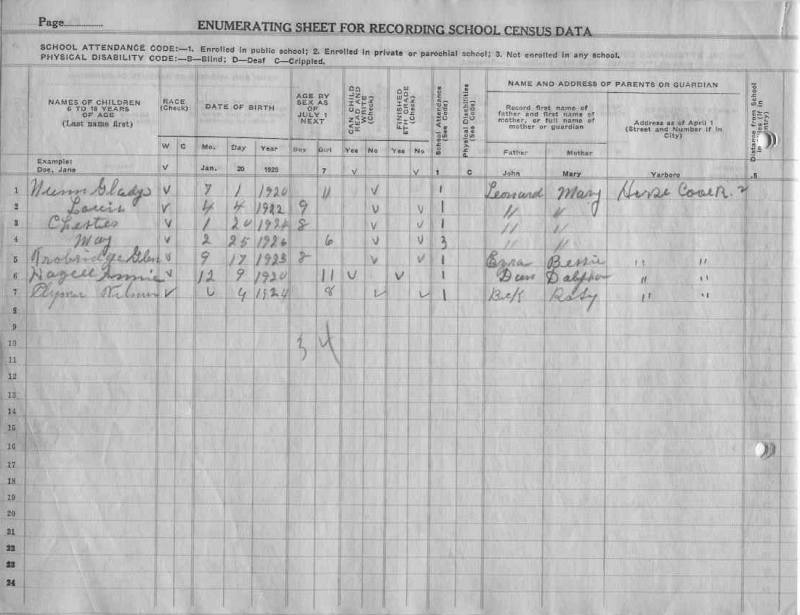 Page
ENUMERATING SHEET FOR RECORDING SCHOOL CENSUS DATA
SCHOOL ATTENDANCE CODE:—1. Enrolled in public school; 2. Enrolled in private or parochial school; 3. Not enrolled in any school.
PHYSICAL DISABILITY CODE:—B—Blind; D—Deaf C—Crippled.
NAMES OF CHILDREN 6 TO 18 YEARS OF AGE (Last name first)
RACE (Check)
W C
DATE OF BIRTH
Mo. Day Year
AGE BY SEX AS OF JULY 1 NEXT
Boy Girl
CAN CHILD READ AND WRITE (Check)
Yes No
FINISHED 8TH GRADE (Check)
Yes No
School Attendance (See Code)
Physical Disabilities (See Code)
NAME AND ADDRESS OF PARENTS OR GUARDIAN
Record first name of father and first name of mother, or full name of mother or guardian
Father Mother
Address as of April 1 (Street and Number if in City)
Distance from School
Example:
Doe, Jane V Jan. 20 1920 7 V V 1 C John Mary Yarboro .5
1 Nunn Gladys V 7 1 1920 11 V 1 Leonard Mary
2 Louis V 4 4 1922 9 V V 1 " "
3 Chester V 1 20 8 V V 1 " "
4 May V 2 25 6 V V 3 " "
5 Glen V 9 17 1923 8 V V 1 Ezra Bessie " "
6 V 12 9 1920 11 V V 1 " "
7 V 4 1924 8 V V 1 " "
8
9
10 3 4
11
12
13
14
15
16
17
18
19
20
21
22
23
24